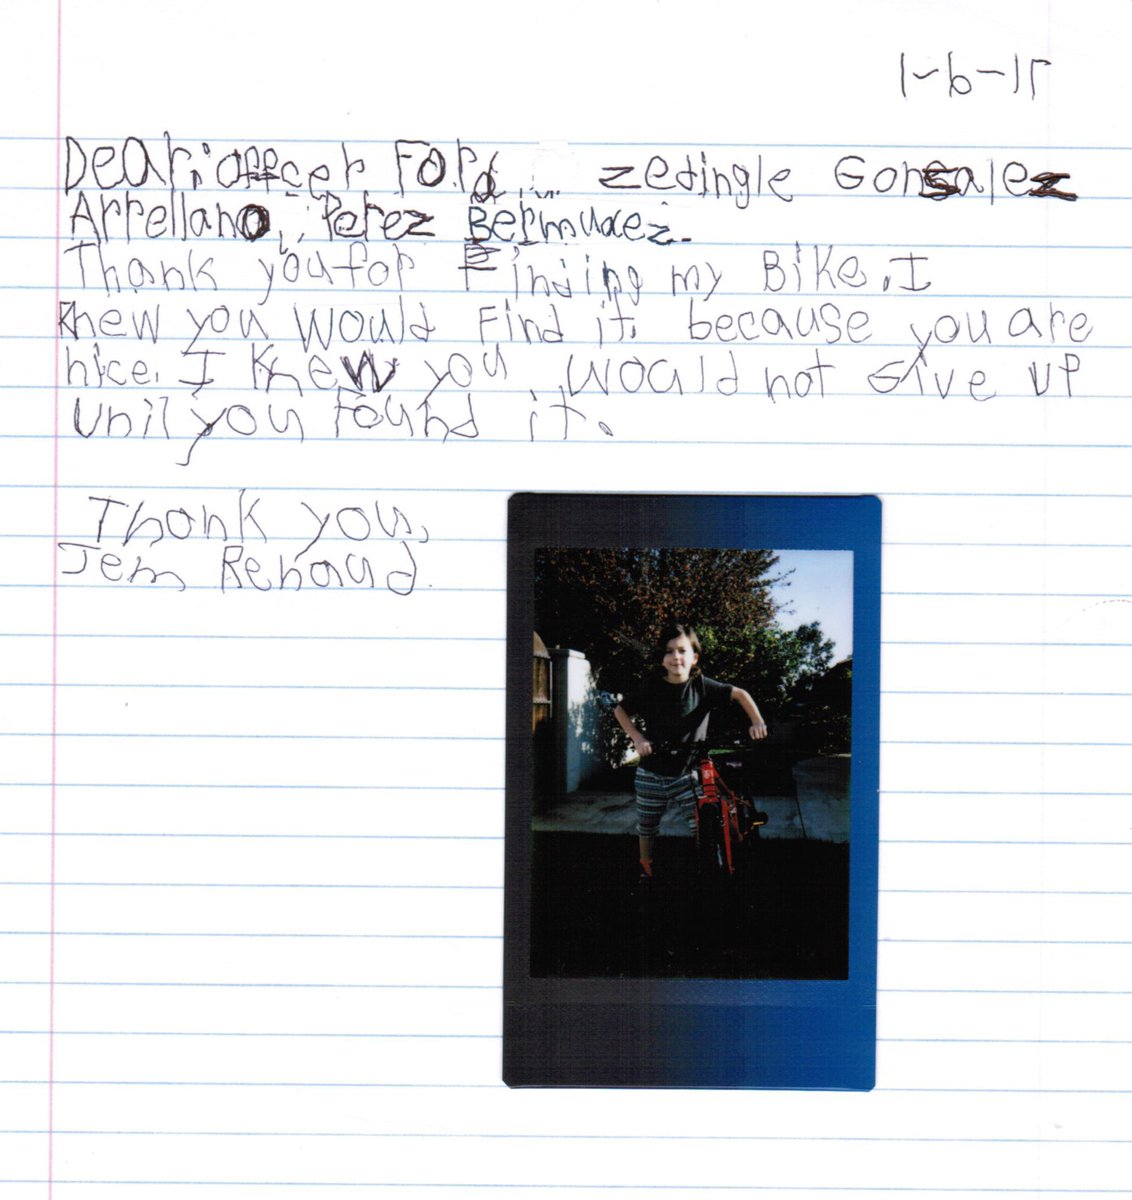 1-6-15
Dear: officer Ford, Zedingle Gonsalez
Arrellano, Perez Bermudez.
Thank you for Finding my Bike. I
knew you would Find it. because you are
nice. I knew you would not Give up
unil you found it.
Thank you,
Jem Renaud.